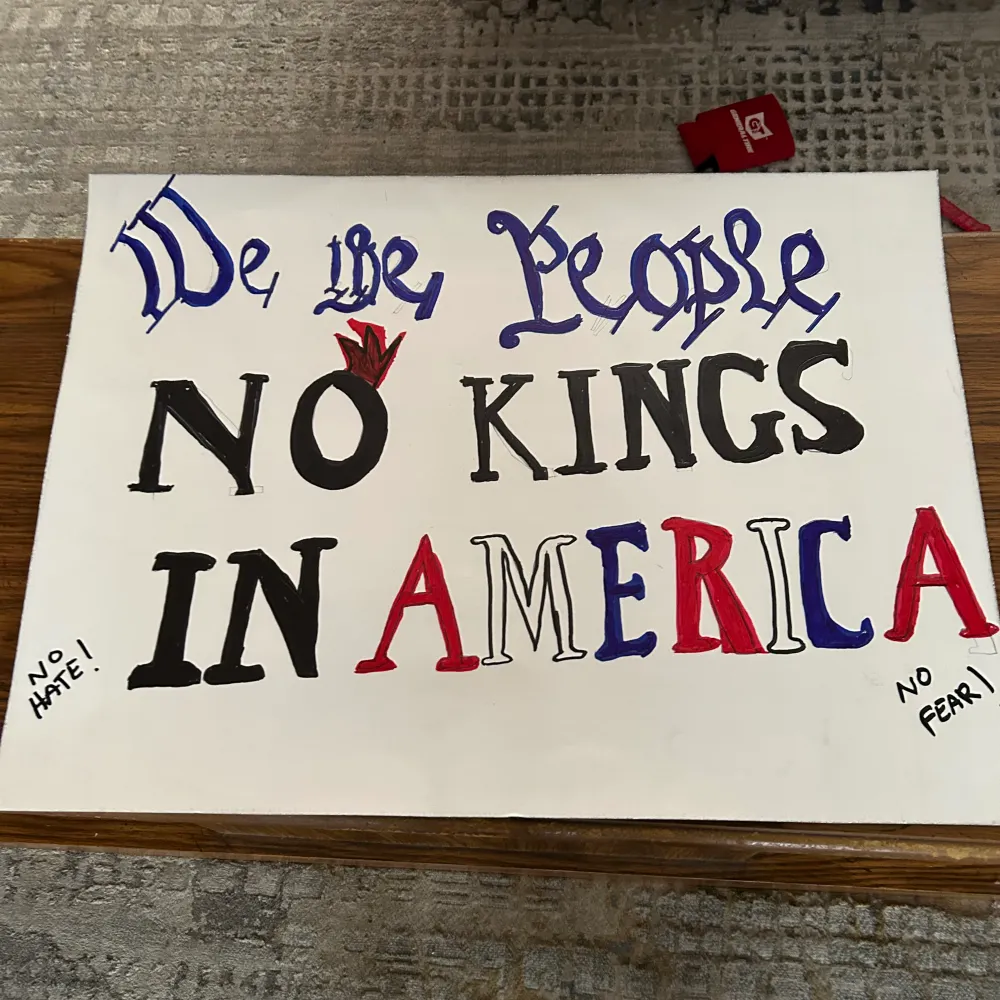 We the People
NO KINGS
IN AMERICA
NO
HATE!
NO
FEAR!